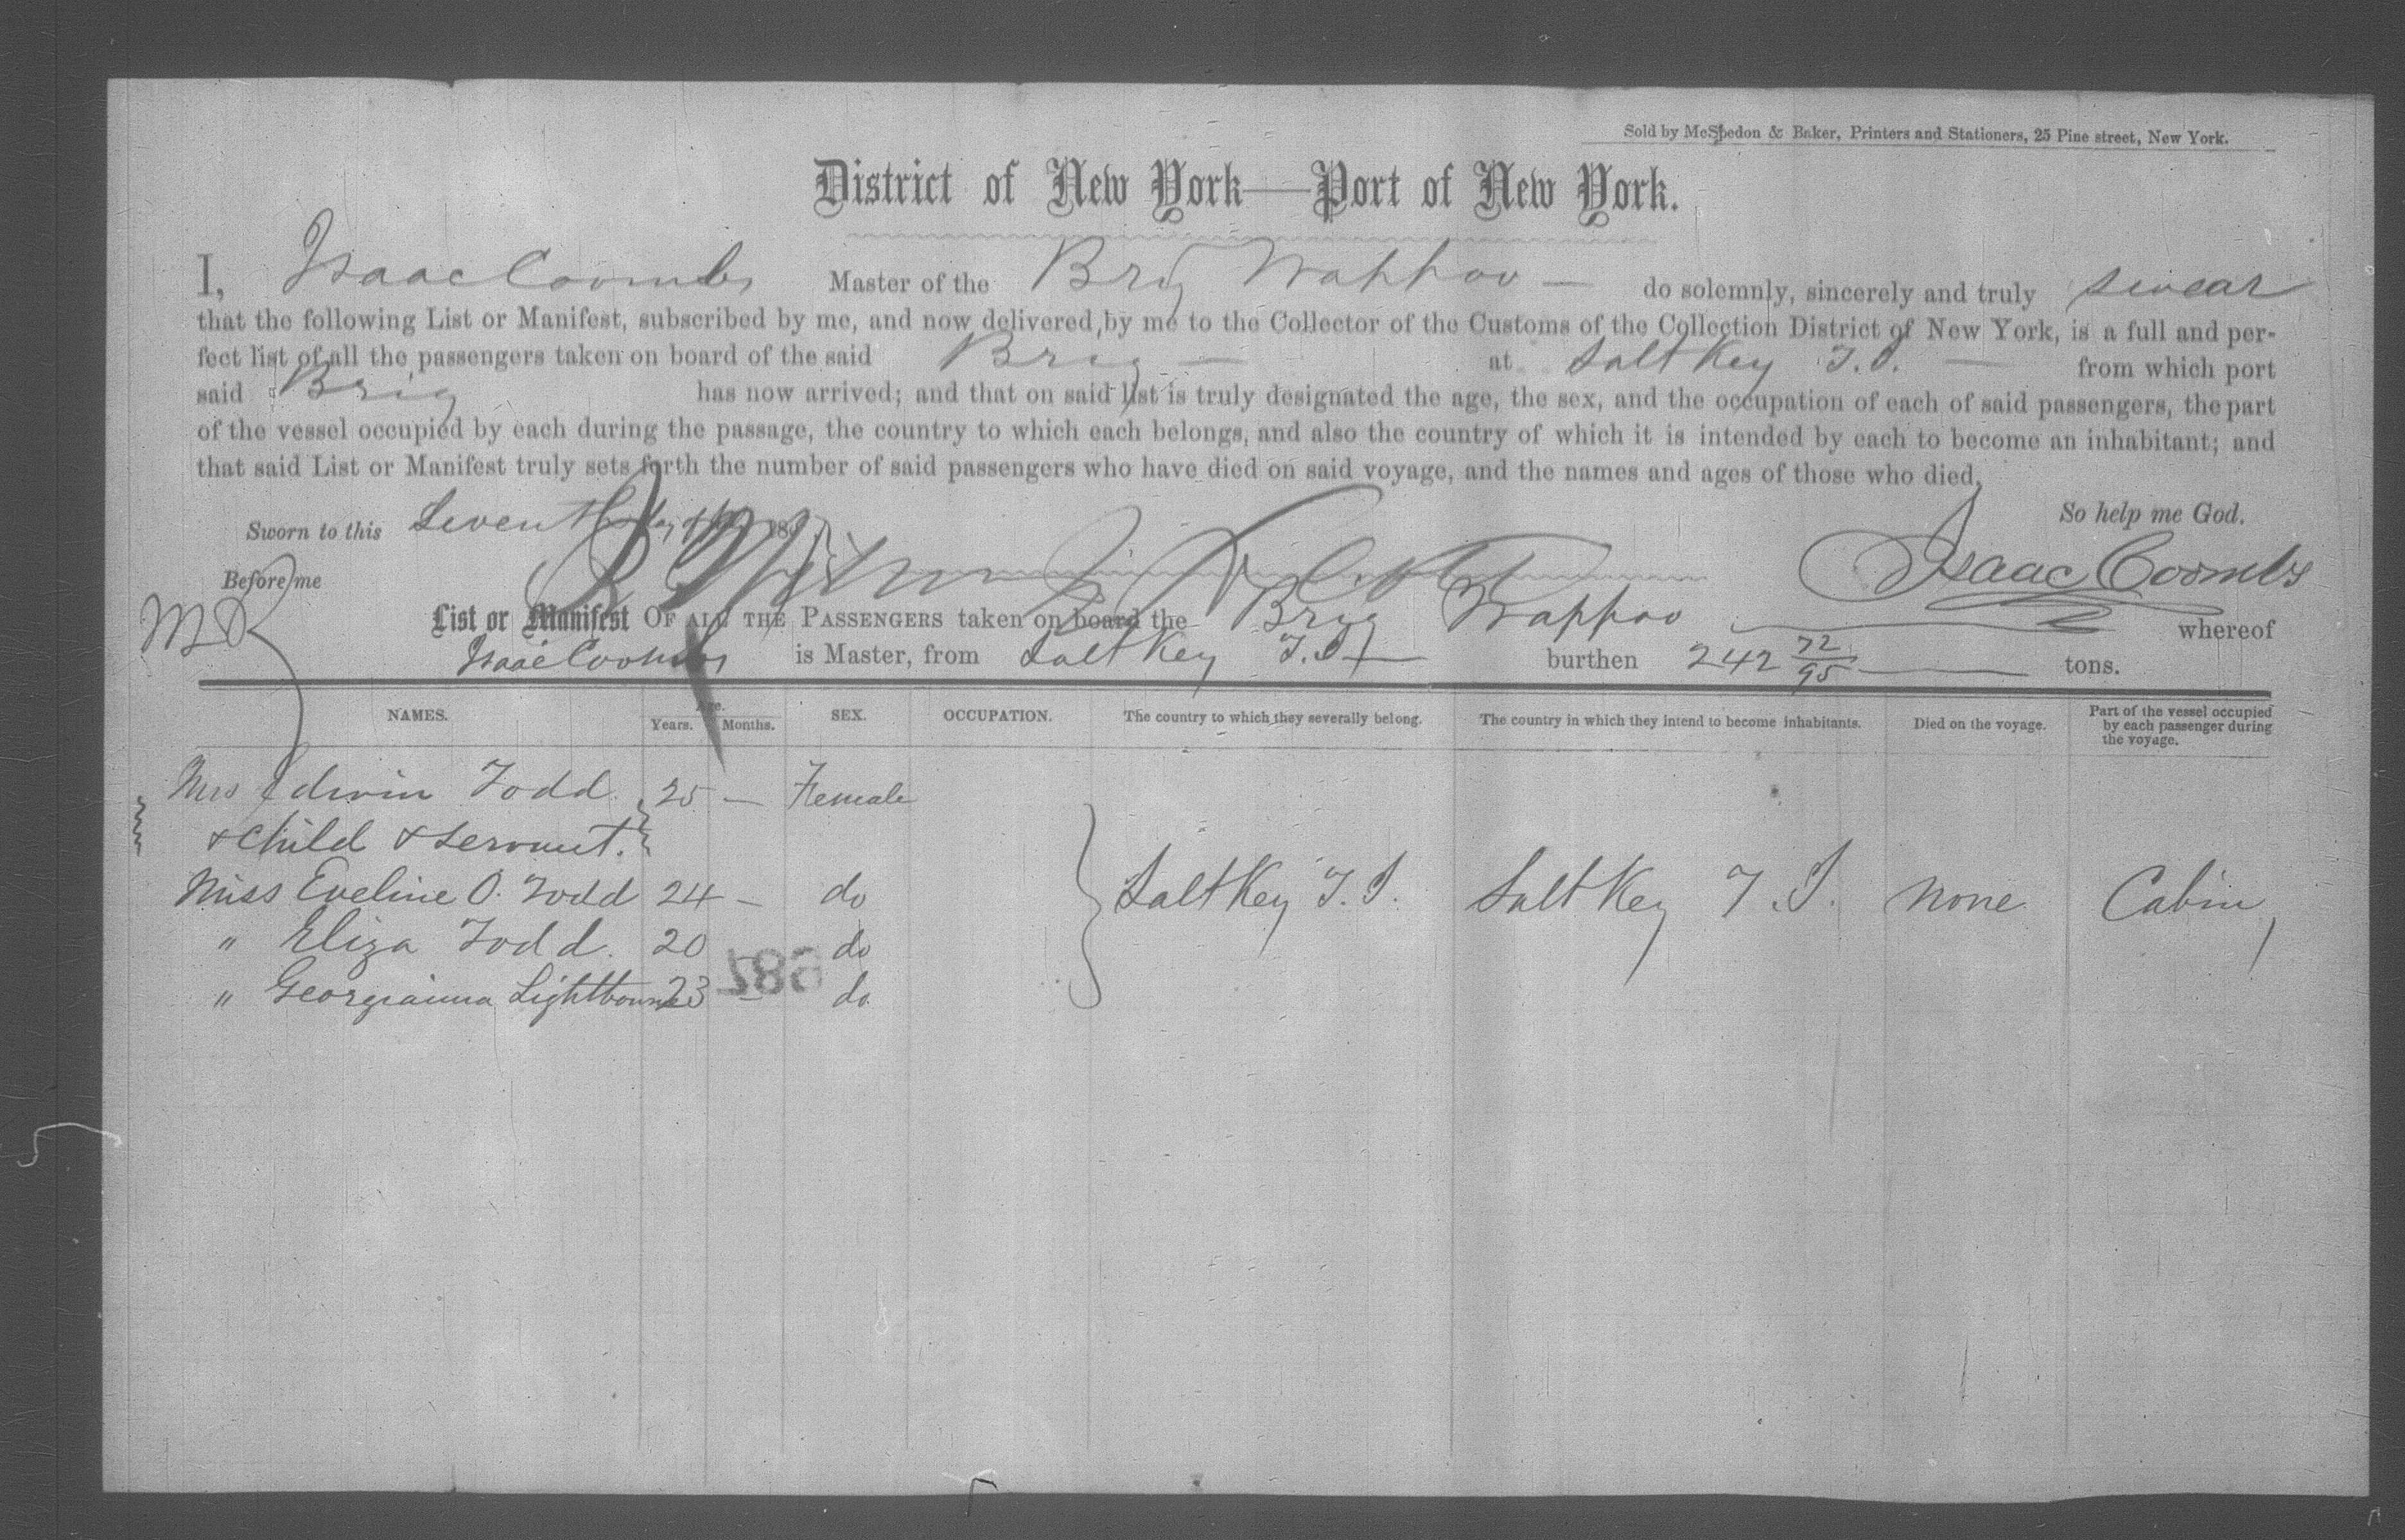 Sold by McSpedon & Baker, Printers and Stationers, 25 Pine street, New York.
District of New York—Port of New York.
I, Isaac Coombs Master of the Brig Wappoo — do solemnly, sincerely and truly swear
that the following List or Manifest, subscribed by me, and now delivered by me to the Collector of the Customs of the Collection District of New York, is a full and per-
fect list of all the passengers taken on board of the said Brig — at Salt Key T.I. — from which port
said Brig has now arrived; and that on said list is truly designated the age, the sex, and the occupation of each of said passengers, the part
of the vessel occupied by each during the passage, the country to which each belongs, and also the country of which it is intended by each to become an inhabitant; and
that said List or Manifest truly sets forth the number of said passengers who have died on said voyage, and the names and ages of those who died.
So help me God.
Sworn to this Seventh 18
Isaac Coombs
Before me
MR
List or Manifest OF ALL THE PASSENGERS taken on board the Brig Wappoo whereof
Isaac Coombs is Master, from Salt Key T.I. burthen 242 72/95 tons.
NAMES. Age. Years. Months. SEX. OCCUPATION. The country to which they severally belong. The country in which they intend to become inhabitants. Died on the voyage. Part of the vessel occupied by each passenger during the voyage.
Mrs Edwin Todd 25 — Female
& Child & Servant.
Miss Eveline O. Todd 24 — do Salt Key T.I. Salt Key T.I. None Cabin
" Eliza Todd. 20 — do
" Georgianna Lightbourne 23 — do
687